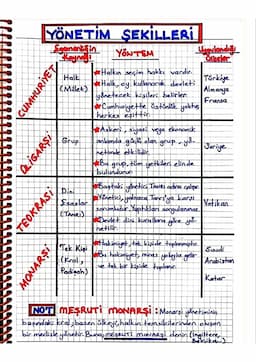 YÖNETİM ŞEKİLLERİ
Egemenliğin Kaynağı
YÖNTEM
Uygulandığı Ülkeler
CUMHURİYET
Halk (Millet)
*Halkın seçim hakkı vardır.
*Halk, oy kullanarak devleti
yönetecek kişileri belirler.
*Cumhuriyette üstünlük yoktur,
herkes eşittir.
Türkiye
Almanya
Fransa
OLİGARŞİ
Grup
*Askeri, siyasi veya ekonomik
anlamda güçlü olan grup, yö-
netimde etkilidir.
*Bu grup, tüm yetkileri elinde
bulundurur.
TEOKRASİ
Dini
Esaslar
(Tanrı)
*Baştaki yönetici Tanrı adına çalışır.
*Yönetici, yalnızca Tanrı'ya karşı
sorumludur. Yaptıkları sorgulanamaz.
*Devlet dini kurallara göre yö-
netilir.
Vatikan
MONARŞİ
Tek Kişi
(Kral,
Padişah)
*Hakimiyet, tek kişide toplanmıştır.
*Bu hakimiyet, miras yoluyla gelir
ve tek bir kişide toplanır.
Suudi
Arabistan
Katar
NOT MEŞRUTİ MONARŞİ: Monarşi yönetiminin
başındaki kral, bazen ülkeyi, halkın temsilcilerinden oluşan
bir meclisle yönetir. Buna, meşruti monarşi denir. (İngiltere,